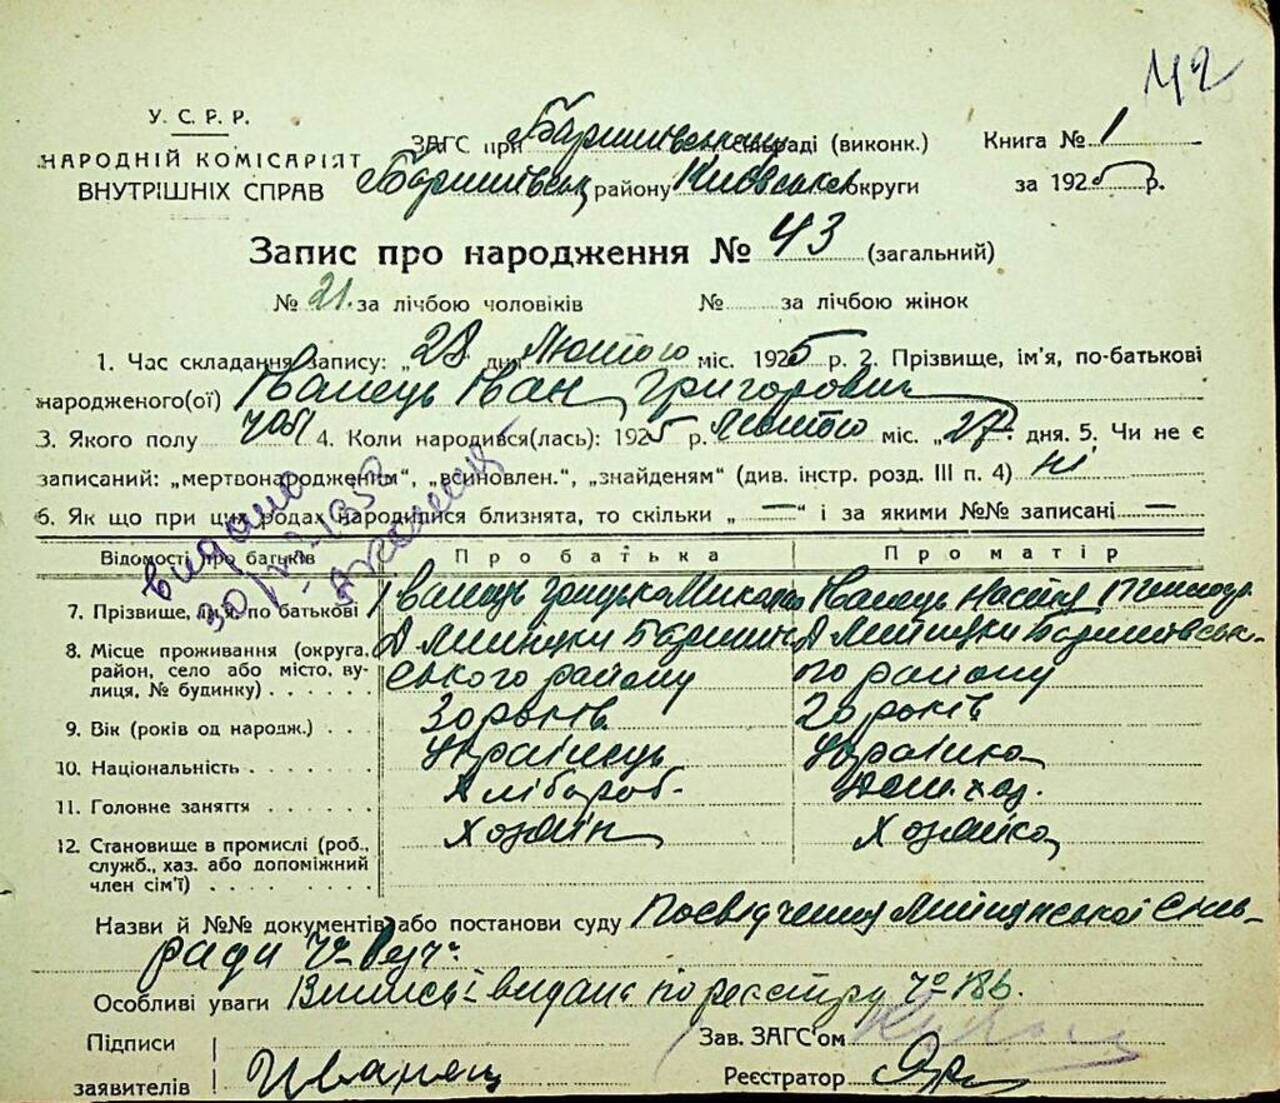 42
У. С. Р. Р.
НАРОДНІЙ КОМІСАРІЯТ
ВНУТРІШНІХ СПРАВ
ЗАГС при Баришівському раді (виконк.)
Баришівськ району Київської округи
Книга № 1
за 1925 р.
Запис про народження № 43 (загальний)
№ 21. за лічбою чоловіків № за лічбою жінок
1. Час складання запису: „28 дня Лютого міс. 1925 р. 2. Прізвище, ім'я, по-батькові
народженого(ої) Іванець Іван Григорович
3. Якого полу чол 4. Коли народився(лась): 1925 р. Лютого міс. „27. дня. 5. Чи не є
записаний: „мертвонародженим“, „всиновлен.“, „знайденям“ (див. інстр. розд. III п. 4) Ні
6. Як що при цих родах народилися близнята, то скільки „ — “ і за якими №№ записані —
видано
Відомості про батьків Про батька Про матір
7. Прізвище, ім'я, по батькові Іванець Грицько Микола Іванець Настя
8. Місце проживання (округа, район, село або місто, вулиця, № будинку)
ського району го району
9. Вік (років од народж.) 30 років 20 років
10. Національність Українець Українка
11. Головне заняття Хлібороб. Дом. хаз.
12. Становище в промислі (роб., Хозяїн Хозяйка
служб., хаз. або допоміжний
член сім'ї)
Назви й №№ документів або постанови суду Посвідчення Сіль-
ради
Особливі уваги Виписі видані по реєстру № 186.
Підписи Зав. ЗАГС'ом
заявителів Иванец Реєстратор